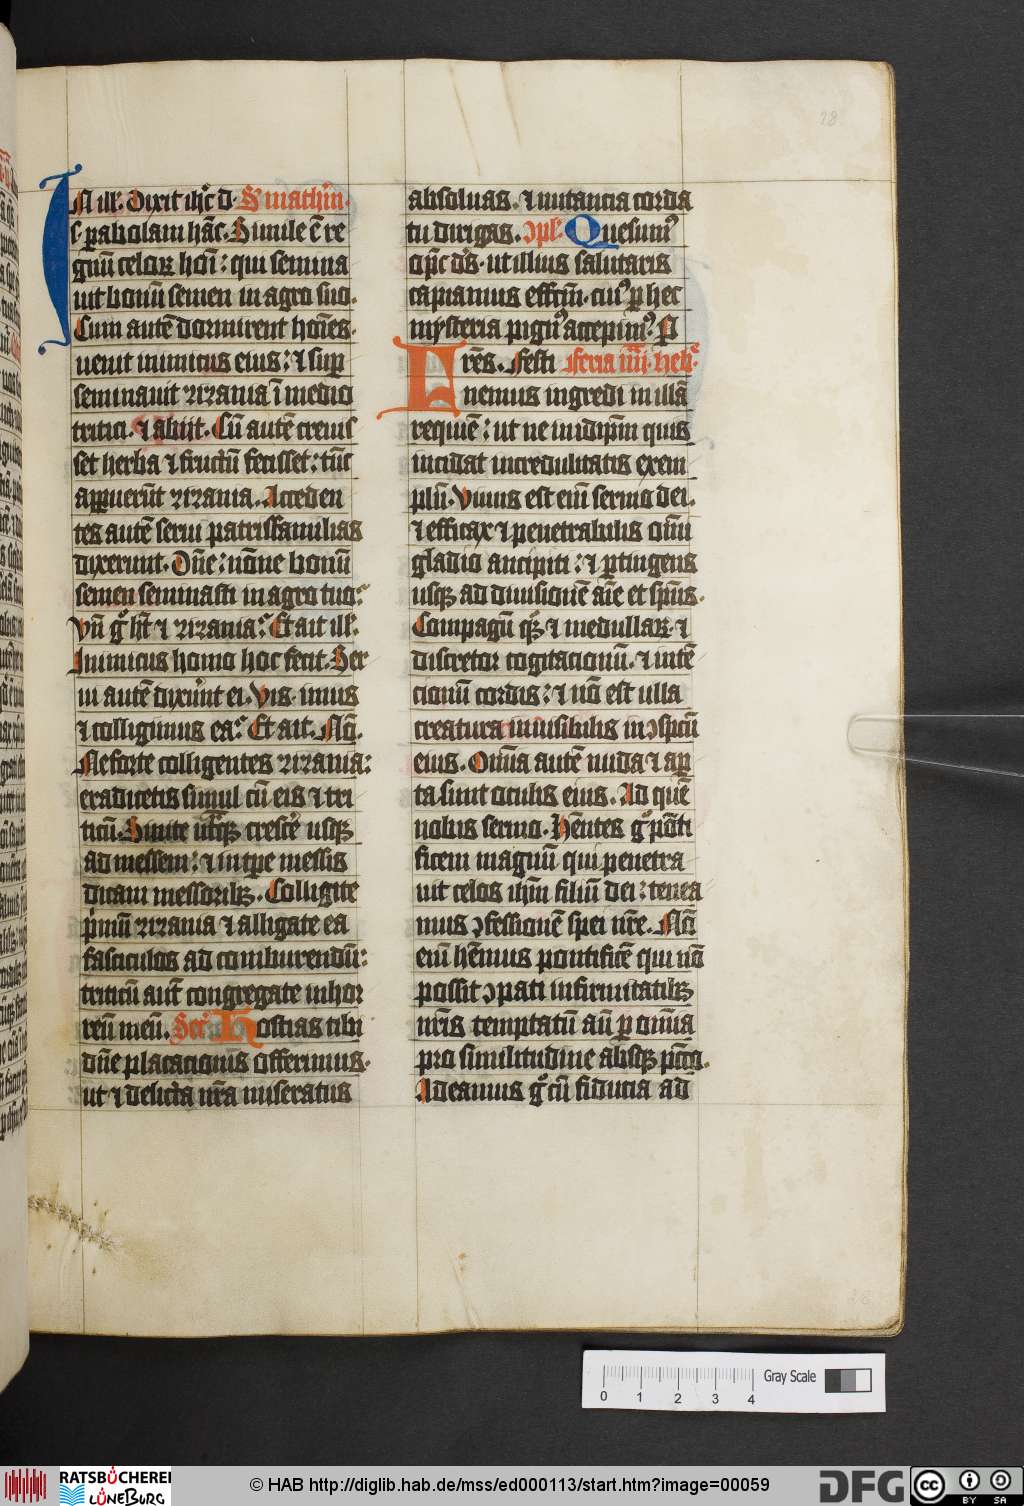 IN ill'. Dixit ih'c d. S mathm.
s. pabolam hāc. Simile ē re
gnū celoꝝ hoī: qui semina
uit bonū semen in agro suo.
Cum autē dormirent hoīes.
uenit inimicus eius: ⁊ sup
seminauit zizania ī medio
tritici. ⁊ abijt. Cū autē creuis
set herba ⁊ fructū fecisset: tūc
apparuerūt zizania. Acceden
tes autē serui patrisfamilias
dixerunt. Dn̄e: nōne bonū
semen seminasti in agro tuo.
Vn̄ gͦ hꝫ ⁊ zizania. Et ait ill'.
Inimicus homo hoc fecit. Ser
ui autē dixer̄t ei. Vis. imus
⁊ colligimus ea. Et ait. Nō.
Ne forte colligentes zizania:
eradicetis simul cū eis ⁊ tri
ticū. Sinite utrꝫ crescē usqꝫ
ad messem: ⁊ in tpe messis
dicam messoribꝫ. Colligite
pͥmū zizania ⁊ alligate ea
fasciculos ad comburendū:
triticū aut̄ congregate in hor
reū meū. Secr̄ Hostias tibi
dn̄e placacionis offerimus.
ut ⁊ delicta nr̄a miseratus
absoluas. ⁊ nutancia corda
tu dirigas. ꝯpl'. Quesumꝰ
op̄c ds̄. ut illius salutaris
capiamus effcm̄. cuiꝰ p hec
mysteria pignꝰ accepimꝰ. P
Fres̄. Festi feria iiij. heb'.
nemus ingredi in illā
requiē: ut ne in idipm̄ quis
incidat incredulitatis exem
plū. Viuus est eni sermo dei.
⁊ efficax ⁊ penetrabilis om̄i
gladio ancipiti: ⁊ ptingens
usqꝫ ad diuisionē aīe et sps̄.
Compagū qꝫ ⁊ medullaꝝ. ⁊
discretor cogitacionū. ⁊ intē
cionū cordis: ⁊ nō est ulla
creatura inuisibilis in ꝯspectu
eius. Om̄ia autē nuda ⁊ ap
ta sunt oculis eius. Ad quē
nobis sermo. Hn̄tes gͦ pōti
ficem magnū qui penetra
uit celos ihm̄ filiū dei: tenea
mus ꝯfessionē spei nr̄e. Nō
eni hēmus pontificē qui nō
possit ꝯpati infirmitatibꝫ
nr̄is temptatū aū p om̄ia
pro similitudine absqꝫ pcc̄o.
Adeamus gͦ cū fiducia ad
Gray Scale
0 1 2 3 4
RATSBÜCHEREI
LÜNEBURG
© HAB http://diglib.hab.de/mss/ed000113/start.htm?image=00059
DFG
cc BY SA